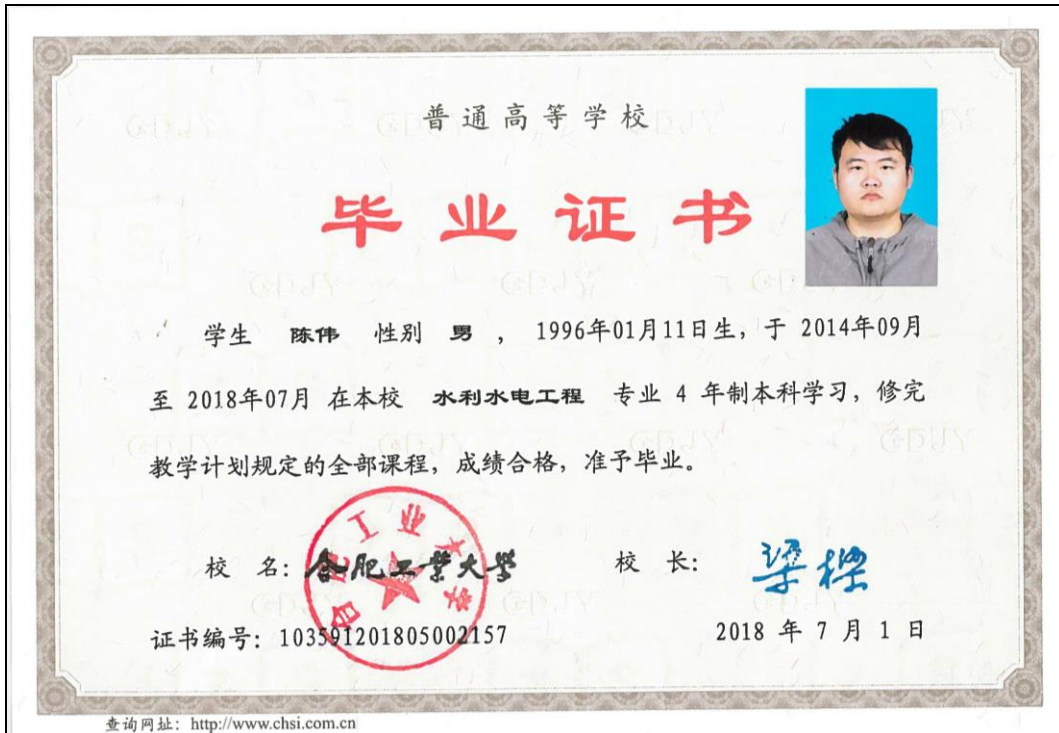 普通高等学校
毕业证书
学生 陈伟 性别 男 ， 1996年01月11日生，于 2014年09月
至 2018年07月 在本校 水利水电工程 专业 4 年制本科学习，修完
教学计划规定的全部课程，成绩合格，准予毕业。
校 名：合肥工业大学 校 长：梁樑
合肥工业大学
证书编号：103591201805002157 2018 年 7 月 1 日
查询网址：http://www.chsi.com.cn